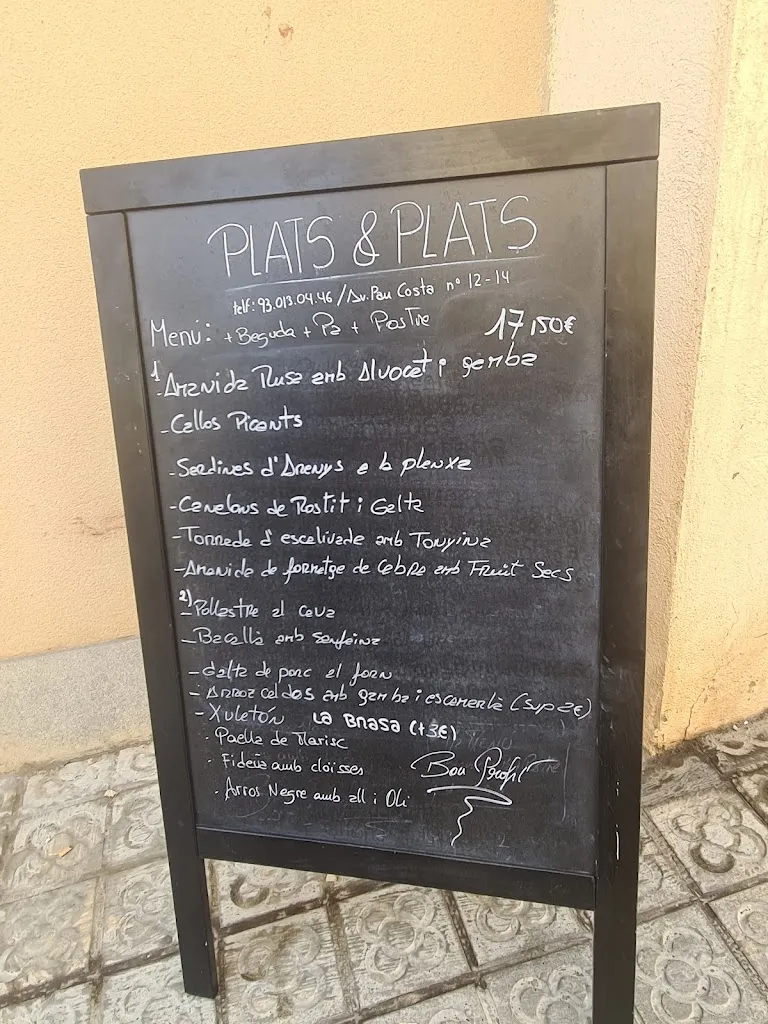 PLATS & PLATS
telf: 93.013.04.46 / Av. Pau Costa nº 12-14
Menú: + Beguda + Pa + Postre 17,50€
1) Amanida Rusa amb Alvocat i gamba
- Callos Picants
- Sardines d'Arenys a la planxa
- Canelons de Rostit i Galta
- Torrada d'escalivada amb Tonyina
- Amanida de formatge de Cabra amb Fruit Secs
2)
- Pollastre al cava
- Bacallà amb Samfaina
- Galta de porc al forn
- Arroz caldos amb gamba i escamarlà (sup 2€)
- Xuletón La Brasa (+3€)
· Paella de Marisc
· Fideúa amb cloïsses
· Arros Negre amb all i Oli
Bon Profit